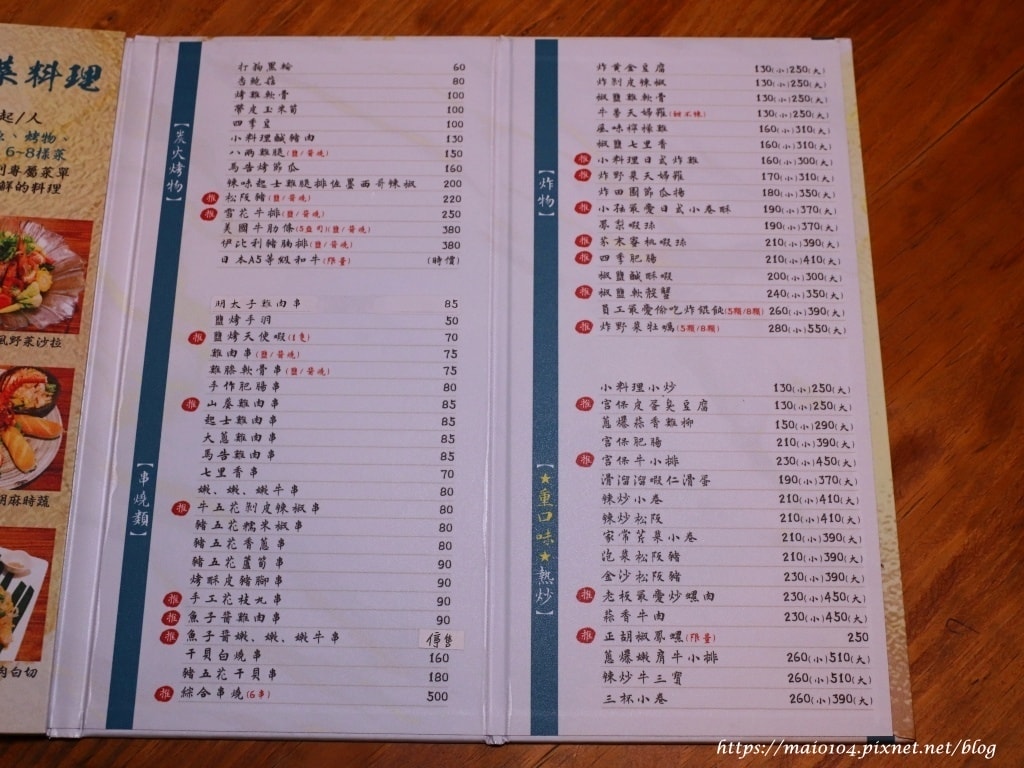 菜料理
起/人
、烤物、
6~8樣菜
專屬菜單
鮮的料理
風野菜沙拉
胡麻時蔬
肉白切
【炭火烤物】
打拋黑輪 60
杏鮑菇 80
烤雞軟骨 100
帶皮玉米筍 100
四季豆 100
小料理鹹豬肉 130
八兩雞腿(鹽/醬燒) 150
馬告烤節瓜 160
辣味起士雞腿排佐墨西哥辣椒 200
推 松阪豬(鹽/醬燒) 220
推 雪花牛排(鹽/醬燒) 250
美國牛肋條(5盎司)(鹽/醬燒) 380
伊比利豬腩排(鹽/醬燒) 380
日本A5等級和牛(限量) (時價)
【串燒類】
明太子雞肉串 85
鹽烤手羽 50
推 鹽烤天使蝦(1隻) 70
雞肉串(鹽/醬燒) 75
雞膝軟骨串(鹽/醬燒) 75
手作肥腸串 80
推 山葵雞肉串 85
起士雞肉串 85
大蔥雞肉串 85
馬告雞肉串 85
七里香串 70
嫩、嫩、嫩牛串 80
推 牛五花剝皮辣椒串 80
豬五花糯米椒串 80
豬五花香蔥串 80
豬五花蘆筍串 90
烤酥皮豬腳串 90
推 手工花枝丸串 90
推 魚子醬雞肉串 90
推 魚子醬嫩、嫩、嫩牛串 停售
干貝白燒串 160
豬五花干貝串 180
推 綜合串燒(6串) 500
【炸物】
炸黃金豆腐 130(小)250(大)
炸剝皮辣椒 130(小)250(大)
椒鹽雞軟骨 130(小)250(大)
牛蒡天婦羅(甜不辣) 130(小)250(大)
風味檸檬雞 160(小)310(大)
椒鹽七里香 160(小)310(大)
推 小料理日式炸雞 160(小)300(大)
推 炸野菜天婦羅 170(小)310(大)
炸田園節瓜揚 180(小)350(大)
推 小孩最愛日式小卷酥 190(小)370(大)
鳳梨蝦球 190(小)370(大)
推 芥末蜜桃蝦球 210(小)390(大)
推 四季肥腸 210(小)410(大)
椒鹽鹹酥蝦 200(小)300(大)
推 椒鹽軟殼蟹 240(小)350(大)
員工最愛偷吃炸餛飩(5顆/8顆) 260(小)390(大)
推 炸野菜牡蠣(5顆/8顆) 280(小)550(大)
【★重口味★熱炒】
小料理小炒 130(小)250(大)
推 宮保皮蛋臭豆腐 130(小)250(大)
蔥爆蒜香雞柳 150(小)290(大)
宮保肥腸 210(小)390(大)
推 宮保牛小排 230(小)450(大)
滑溜溜蝦仁滑蛋 190(小)370(大)
辣炒小卷 210(小)410(大)
辣炒松阪 210(小)410(大)
家常芹菜小卷 210(小)390(大)
泡菜松阪豬 210(小)390(大)
金沙松阪豬 230(小)390(大)
推 老板最愛炒螺肉 230(小)450(大)
蒜香牛肉 230(小)450(大)
推 正胡椒鳳螺(限量) 250
蔥爆嫩肩牛小排 260(小)510(大)
辣炒牛三寶 260(小)510(大)
三杯小卷 260(小)390(大)
https://maio104.pixnet.net/blog